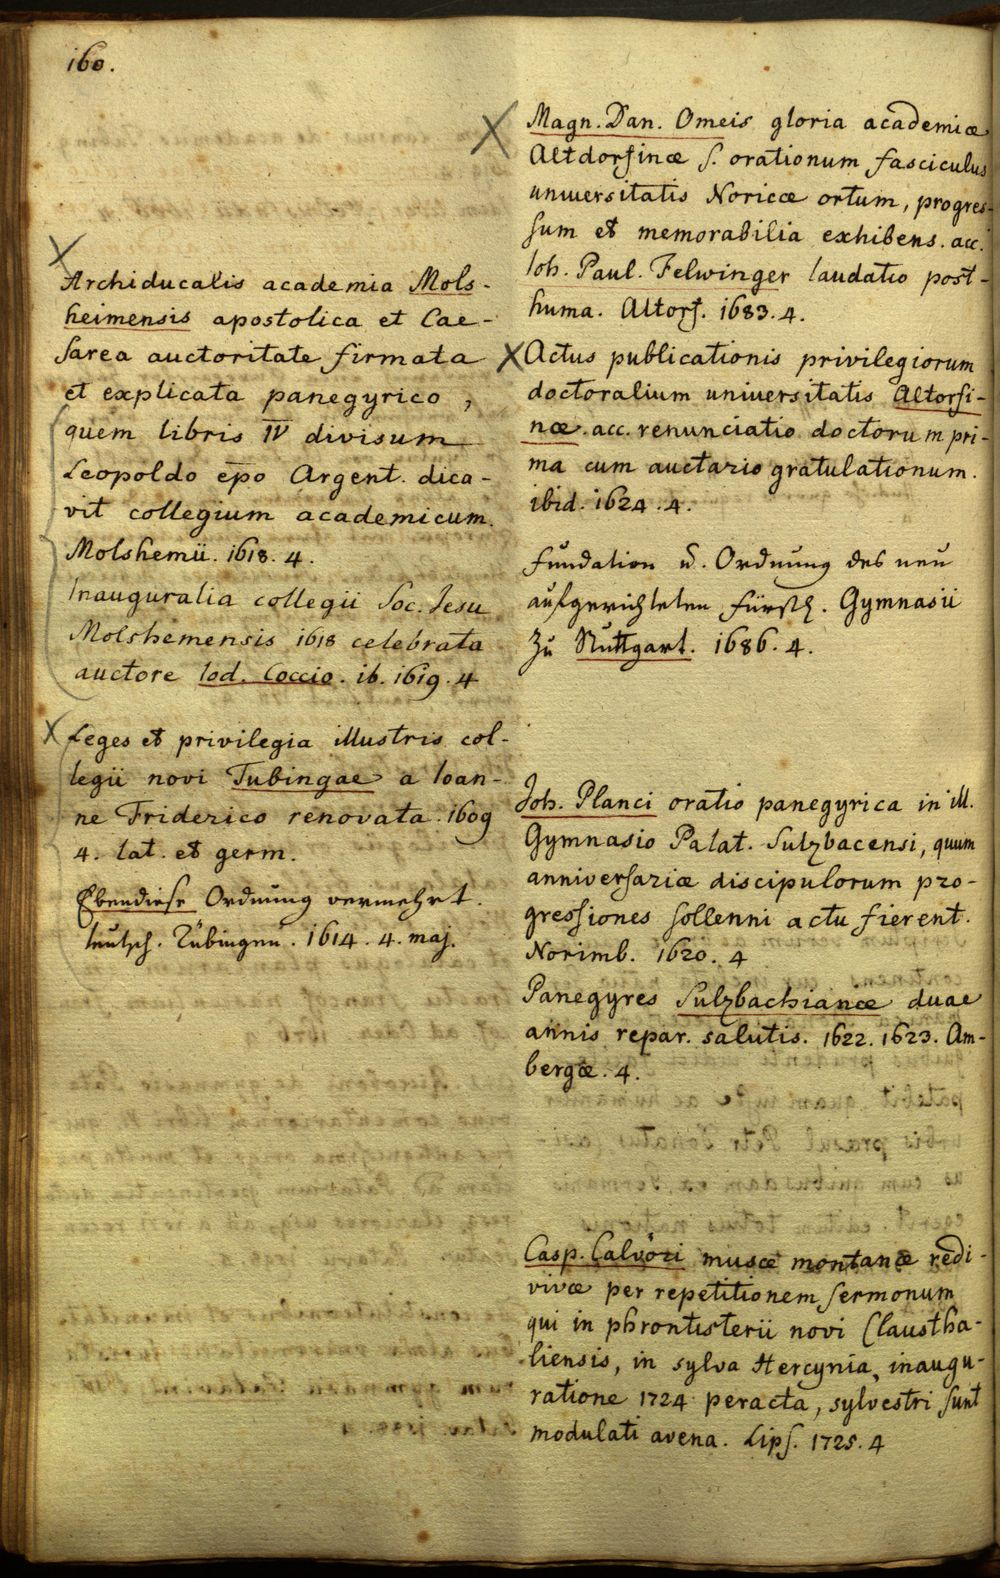 160.
Archiducalis academia Mols-
heimensis apostolica et Cae-
sarea auctoritate firmata
et explicata panegyrico,
quem libris IV divisum
Leopoldo ep̄o Argent. dica-
vit collegium academicum.
Molshemii. 1618. 4.
Inauguralia collegii Soc. Jesu
Molshemensis 1618 celebrata
auctore Iod. Coccio. ib. 1619. 4
Leges et privilegia illustris col-
legii novi Tubingae a Ioan-
ne Friderico renovata. 1609
4. lat. et germ.
Ebendiese Ordnung vermehrt.
teutsch. Tübingen. 1614. 4. maj.
Magn. Dan. Omeis gloria academiæ
Altdorfinæ s. orationum fasciculus
universitatis Noricæ ortum, progres-
sum et memorabilia exhibens. acc.
Ioh. Paul. Felwinger laudatio post-
huma. Altorf. 1683. 4.
Actus publicationis privilegiorum
doctoralium universitatis Altorfi-
næ. acc. renunciatio doctorum pri-
ma cum auctario gratulationum.
ibid. 1624. 4.
Fundation u. Ordnung des neu
aufgerichteten fürstl. Gymnasii
zu Stuttgart. 1686. 4.
Joh. Planci oratio panegyrica in ill.
Gymnasio Palat. Sulzbacensi, quum
anniversariæ discipulorum pro-
gressiones sollenni actu fierent.
Norimb. 1620. 4
Panegyres Sulzbachianæ duae
annis repar. salutis. 1622. 1623. Am-
bergæ. 4.
Casp. Calvöri musæ montanæ redi-
vivæ per repetitionem sermonum
qui in phrontisterii novi Claustha-
liensis, in sylva Hercynia, inaugu-
ratione 1724 peracta, sylvestri sunt
modulati avena. Lips. 1725. 4